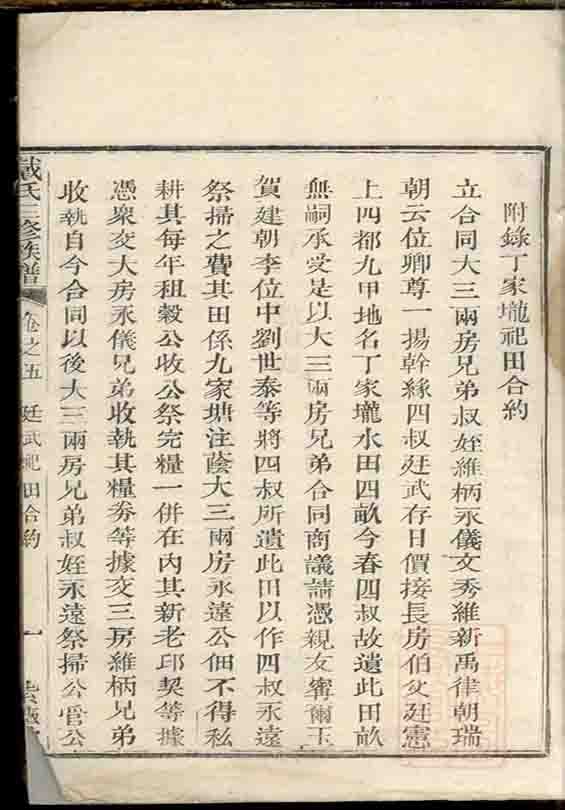 附錄丁家壠祀田合約
立合同大三兩房兄弟叔姪維柄永儀文秀維新禹律朝瑞
朝云位卿尊一揚幹緣四叔廷武存日價接長房伯父廷憲
上四都九甲地名丁家壠水田四畝今春四叔故遺此田畝
無嗣承受是以大三兩房兄弟合同商議請憑親友甯爾玉
賀建朝李位中劉世泰等將四叔所遺此田以作四叔永遠
祭掃之費其田係九家塘注蔭大三兩房永遠公佃不得私
耕其每年租穀公收公祭完糧一併在內其新老邱契等據
憑衆交大房永儀兄弟收執其糧券等據交三房維柄兄弟
收執自今合同以後大三兩房兄弟叔姪永遠祭掃公管公
戴氏三修族譜 卷之五 廷武祀田合約 一